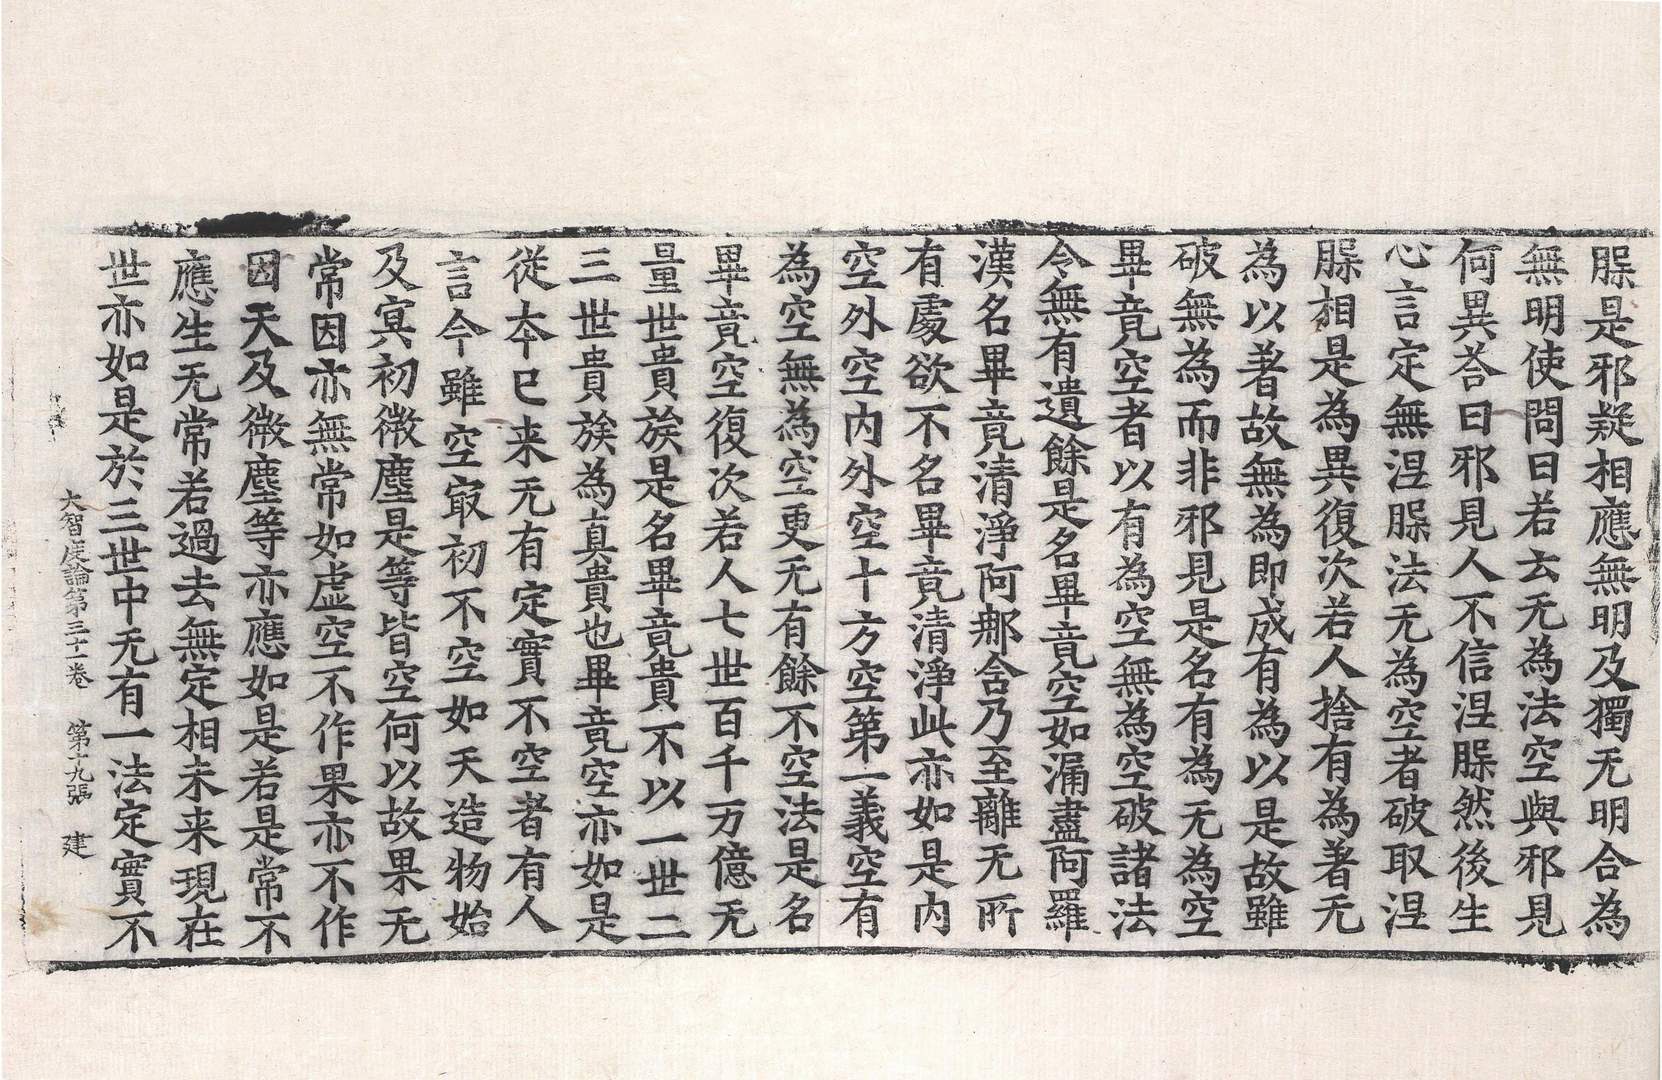 𦙁是邪疑相應無明及獨无明合為
無明使問曰若云无為法空與邪見
何異荅曰邪見人不信涅𦙁然後生
心言定無涅𦙁法无為空者破取涅
𦙁相是為異復次若人捨有為著无
為以著故無為即成有為以是故雖
破無為而非邪見是名有為无為空
畢竟空者以有為空無為空破諸法
令無有遺餘是名畢竟空如漏盡阿羅
漢名畢竟清淨阿那含乃至離无所
有處欲不名畢竟清淨此亦如是內
空外空內外空空十方空第一義空有
為空無為空更无有餘不空法是名
畢竟空復次若人七世百千万億无
量世貴族是名畢竟貴不以一世二
三世貴族為真貴也畢竟空亦如是
從夲已来无有定實不空者有人
言今雖空㝡初不空如天造物始
及㝠初微塵是等皆空何以故果无
常因亦無常如虛空不作果亦不作
因天及微塵等亦應如是若是常不
應生无常若過去無定相未来現在
世亦如是於三世中无有一法定實不
大智度論第三十一卷　第十九張　建